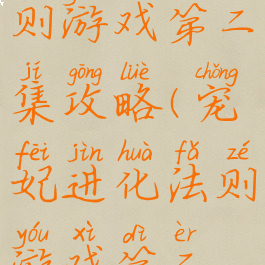 则游戏第二
jí gōng lüè chǒng
集攻略(宠
fēi jìn huà fǎ zé
妃进化法则
yóu xì dì èr
游戏第二